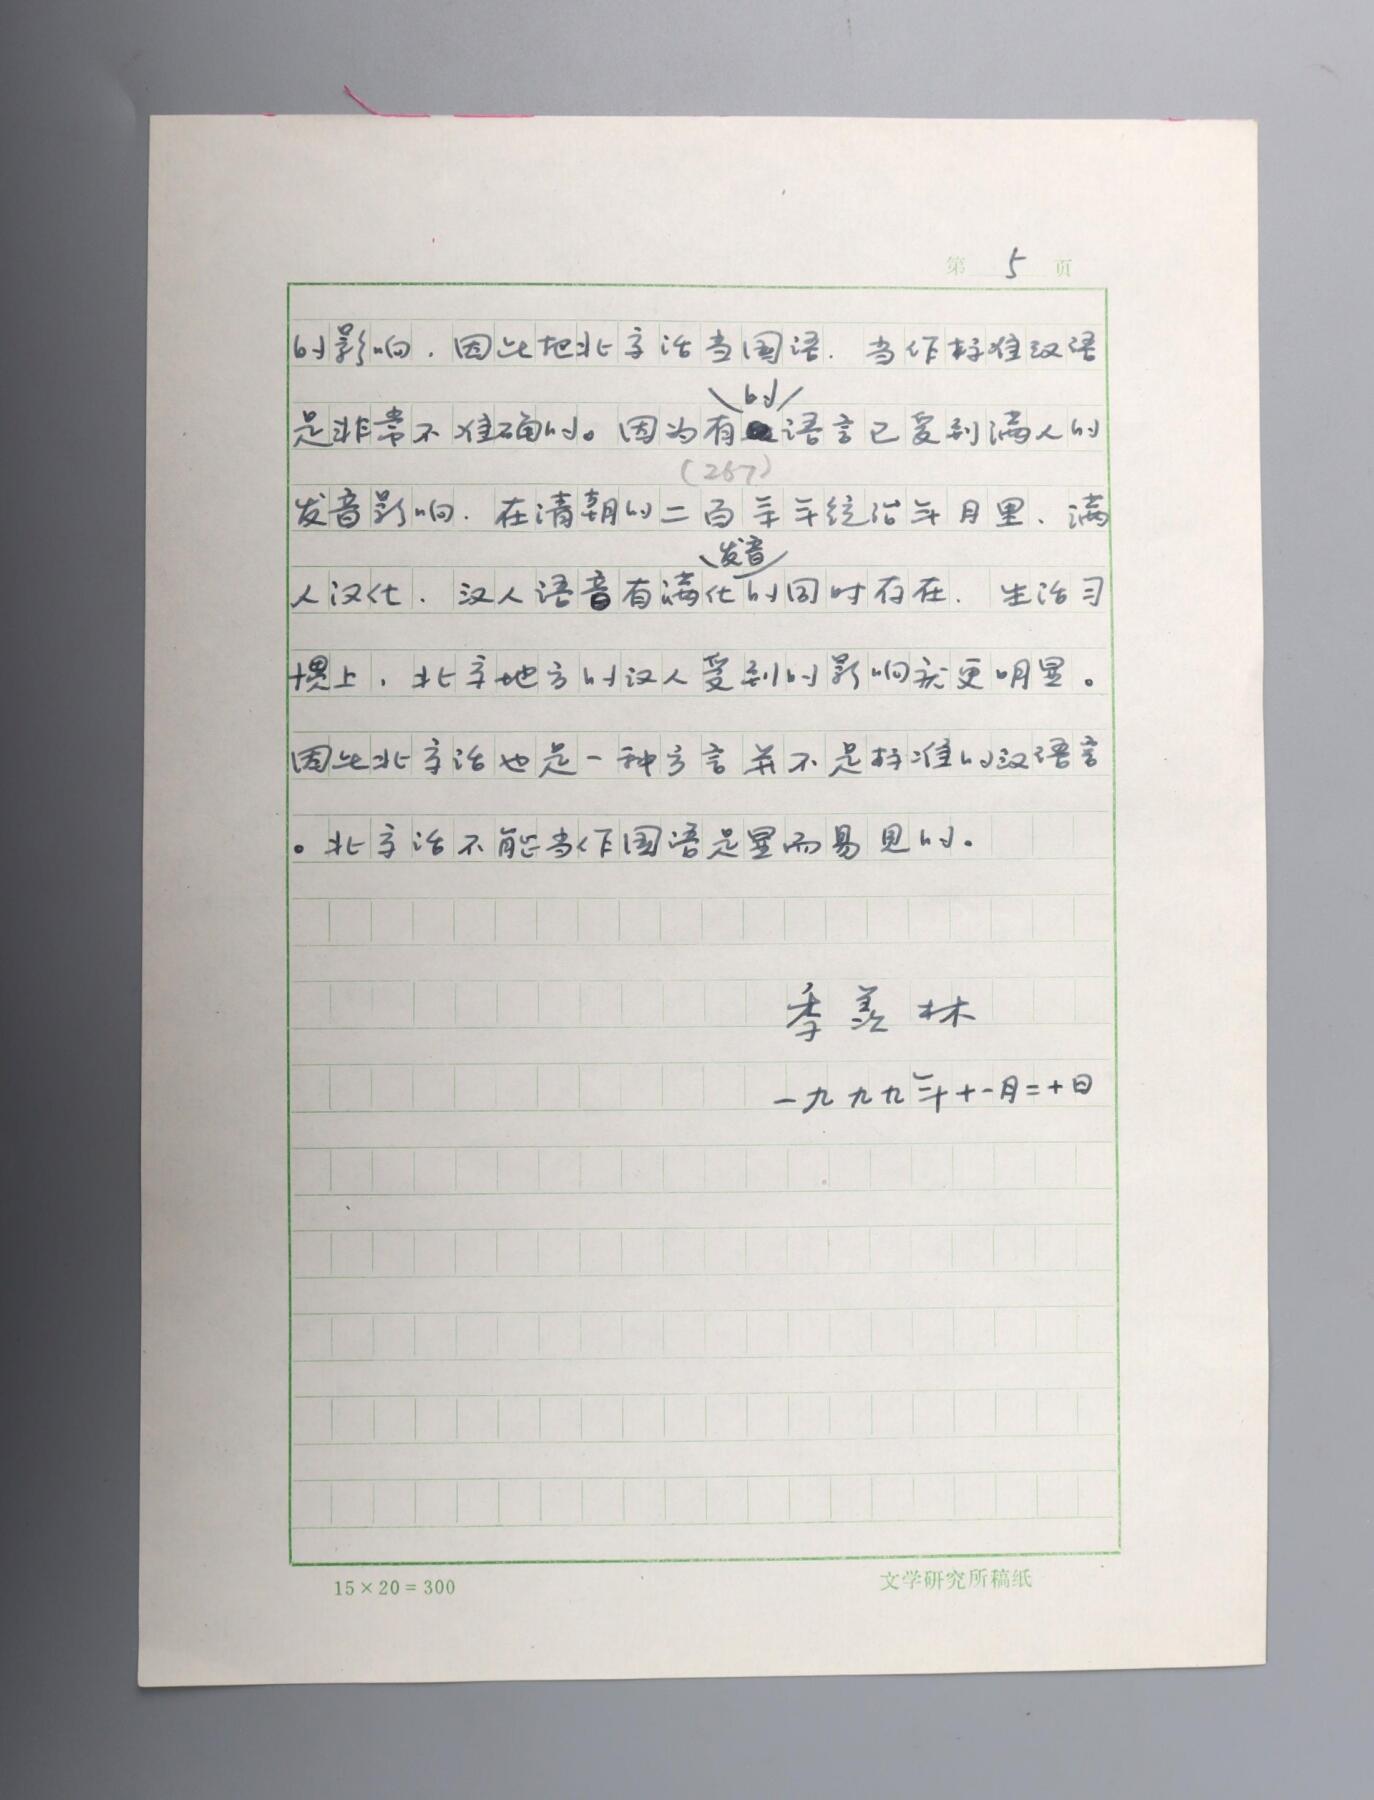 第 5 页
的影响.因此把北京话当国语.当作标准汉语
的
是非常不准确的。因为有语言已受到满人的
(267)
发音影响.在清朝的二百年年统治年月里、满
发音
人汉化.汉人语音有满化的同时存在.生活习
惯上,北京地方的汉人受到的影响就更明显。
因此北京话也是一种方言并不是标准的汉语言
。北京话不能当作国语是显而易见的。
季羡林
一九九九年十一月二十日
15×20=300 文学研究所稿纸